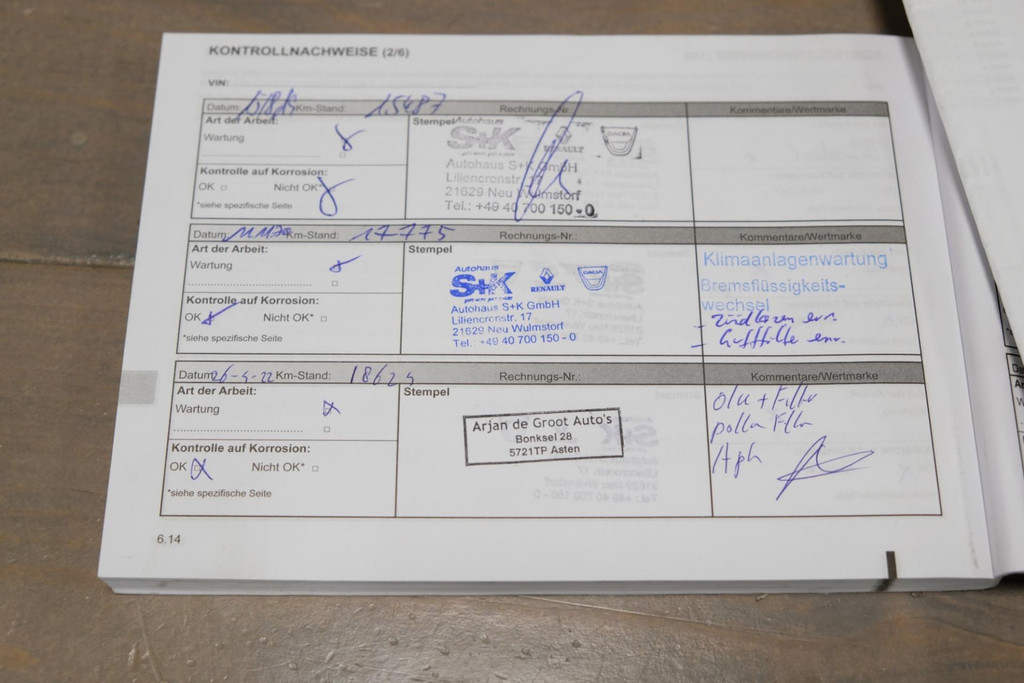 KONTROLLNACHWEISE (2/6)
VIN:
Datum: Km-Stand: 15487 Rechnungs-Nr.: Kommentare/Wertmarke
Art der Arbeit:
Wartung
Kontrolle auf Korrosion:
OK Nicht OK*
*siehe spezifische Seite
Stempel
Autohaus
S+K
RENAULT
DACIA
Autohaus S+K GmbH
Liliencronstr. 17
21629 Neu Wulmstorf
Tel.: +49 40 700 150 - 0
Datum: Km-Stand: 17775 Rechnungs-Nr.: Kommentare/Wertmarke
Art der Arbeit:
Wartung
Kontrolle auf Korrosion:
OK Nicht OK*
*siehe spezifische Seite
Stempel
Autohaus
S+K
RENAULT
DACIA
Autohaus S+K GmbH
Liliencronstr. 17
21629 Neu Wulmstorf
Tel.: +49 40 700 150 - 0
Klimaanlagenwartung
Bremsflüssigkeits-
wechsel
- Zündkerzen ern.
- Luftfilter ern.
Datum: 26-4-22 Km-Stand: Rechnungs-Nr.: Kommentare/Wertmarke
Art der Arbeit:
Wartung
Kontrolle auf Korrosion:
OK Nicht OK*
*siehe spezifische Seite
Stempel
Arjan de Groot Auto's
Bonksel 28
5721TP Asten
olie + Filter
pollen Filter
Apk
6.14